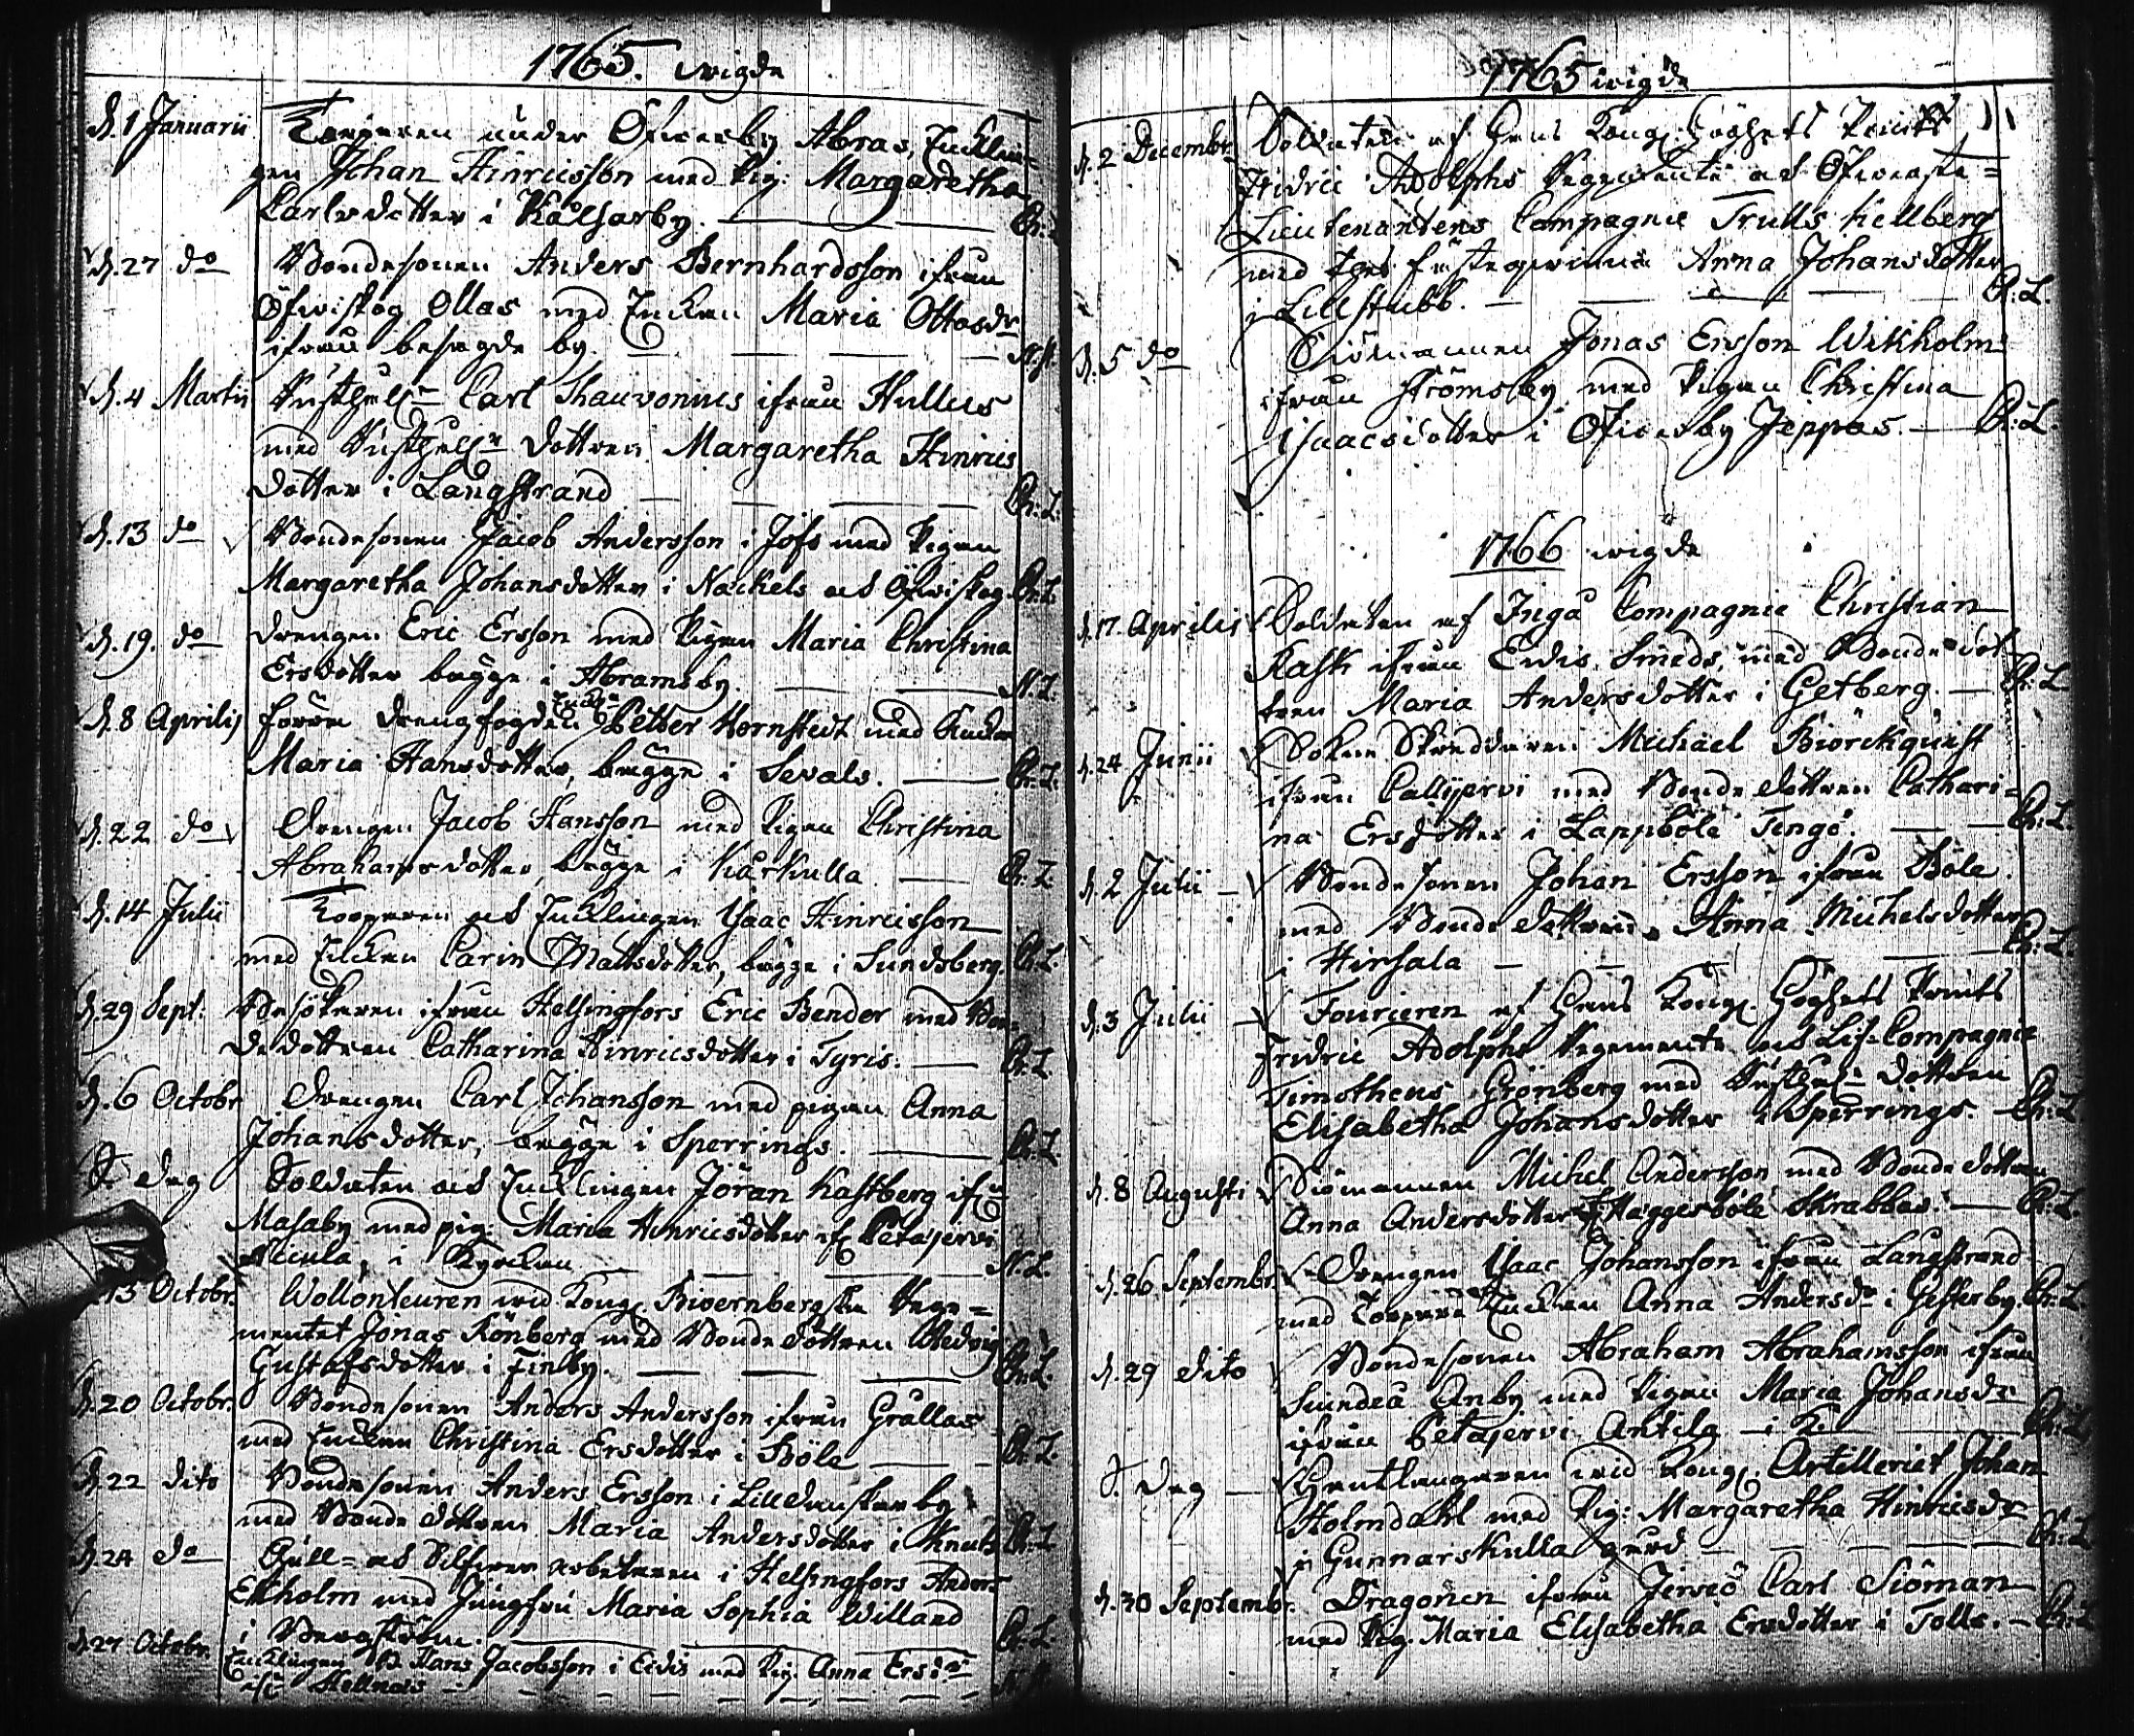 1765. wigde
d. 1 Januarii Torparen under Öfwerby Abras, Enklin=
gen Johan Hinricsson med Pig: Margaretha
Carlsdotter i Kålsarby. Pr: L.
d. 27 do Bondesonen Anders Bernhardsson ifrån
Öfwitskog Ollas med Enkan Maria Ottosdr
ifrån besagde by.
d. 4 Martii Rusth: Carl Thauvonius ifrån Hullus
med Rusth: dottren Margaretha Hinrics
dotter i Långstrand Pr: L.
d. 13 do Bondesonen Jacob Andersson i Jofs med Pigan
Margaretha Johansdotter i Nackels ad Öfwitskog Pr: L.
d. 19. do Drengen Eric Ersson med Pigan Maria Christina
Ersdotter bägge i Abramsby. N. L.
d. 8 Aprilis förre drengfogden Petter Hornstedt med Enkan
Maria Hansdotter, bägge i Sevals. Pr: L.
d. 22 do Drengen Jacob Hansson med Pigan Christina
Abrahamsdotter, bägge i Kärkulla Pr: L.
d. 14 Julii Torparen och Enklingen Isaac Hinricsson
med Enkan Carin Mattsdotter, bägge i Sundsberg. Pr: L.
d. 29 Sept: Besökaren ifrån Helsingfors Eric Bender med Bon=
dedottren Catharina Hinricsdotter i Tyris. Pr: L.
d. 6 Octobr Drengen Carl Johansson med pigan Anna
Johansdotter, bägge i Sperrings. Pr: L.
S. dag Soldaten och Enklingen Jöran Kastberg ifrn
Masaby med pig: Maria Hinricsdotter af Petäjervi
i Kyrckan N. L.
d. 15 Octobr. Wolonteuren wid Kongl. Biöernbergska Rege=
mentet Jonas Rönberg med Bondedottren Hedvig
Gustafsdotter i Finby. Pr: L.
d. 20 Octobr. Bondesonen Anders Andersson ifrån Grållas
med Enkan Christina Ersdotter i Böle Pr: L.
d. 22 dito Bondesonen Anders Ersson i Lilldanskarby
med Bondedottren Maria Andersdotter i Knuts Pr: L.
d. 24 do Gull= och Silfwer arbetaren i Helsingfors Anders
Ekholm med Jungfru Maria Sophia Willand
i Bergström. Pr: L.
d. 27 Octobr. Enklingen Hans Jacobsson i Eidis med Pig. Anna Ersdr
ifr Stellnas
1765 wigde
d. 2 Decembr. Soldaten af Hans Kongl. Höghets Printz
Fridric Adolphs Regemente och Öfwerste=
Lieutenantens Compagnie Trulls Kellberg
med dess fästeqwinna Anna Johansdotter
i Lillstubb. Pr: L.
d. 5 do Siömannen Jonas Ersson Wikholm
ifrån Strömsby med Pigan Christina
Isaacsdotter i Öfwerby Jeppas. Pr: L.
1766 wigde
d. 17. Aprilis Soldaten af Ingå Compagnie Christian
Rask ifrån Evis Smeds, med Bondedot=
tren Maria Andersdotter i Getberg. Pr: L.
d. 24 Junii Sokne Skreddaren Michael Biörckquist
ifrån Callijervi med Bondedottren Cathari=
na Ersdotter i Lappböle Tengö. Pr: L.
d. 2 Julii Bondesonen Johan Ersson ifrån Böle
med Bondedottren Anna Michelsdotter
i Hirsala Pr: L.
d. 3 Julii Fourieren af Hans Kongl. Höghets Printz
Fridric Adolphs Regemente och Lif-Compagnie
Timotheus Grönberg med Rusth: dottren
Elisabetha Johansdotter i Sperrings. Pr: L.
d. 8 Augusti Siömannen Michel Andersson med Bondedottren
Anna Andersdotter i Haggesböle Skrabbas. Pr: L.
d. 26 Septembr. Drengen Isaac Johansson ifrån Långstrand
med Torpare Enkan Anna Andersdr i Gesterby. Pr: L.
d. 29 dito Bondesonen Abraham Abrahamsson ifrån
Siundeå Änby med Pigan Maria Johansdr
ifrån Petäjervi Antila i K. Pr: L.
S. dag Handtlangaren wid Kongl. Artilleriet Johan
Holmdahl med Pig: Margaretha Hinricsdr
i Gunnarskulla gård Pr: L.
d. 30 Septembr. Dragonen ifrån Jersö Carl Siöman
med Pig. Maria Elisabetha Ersdotter i Tolls. Pr: L.